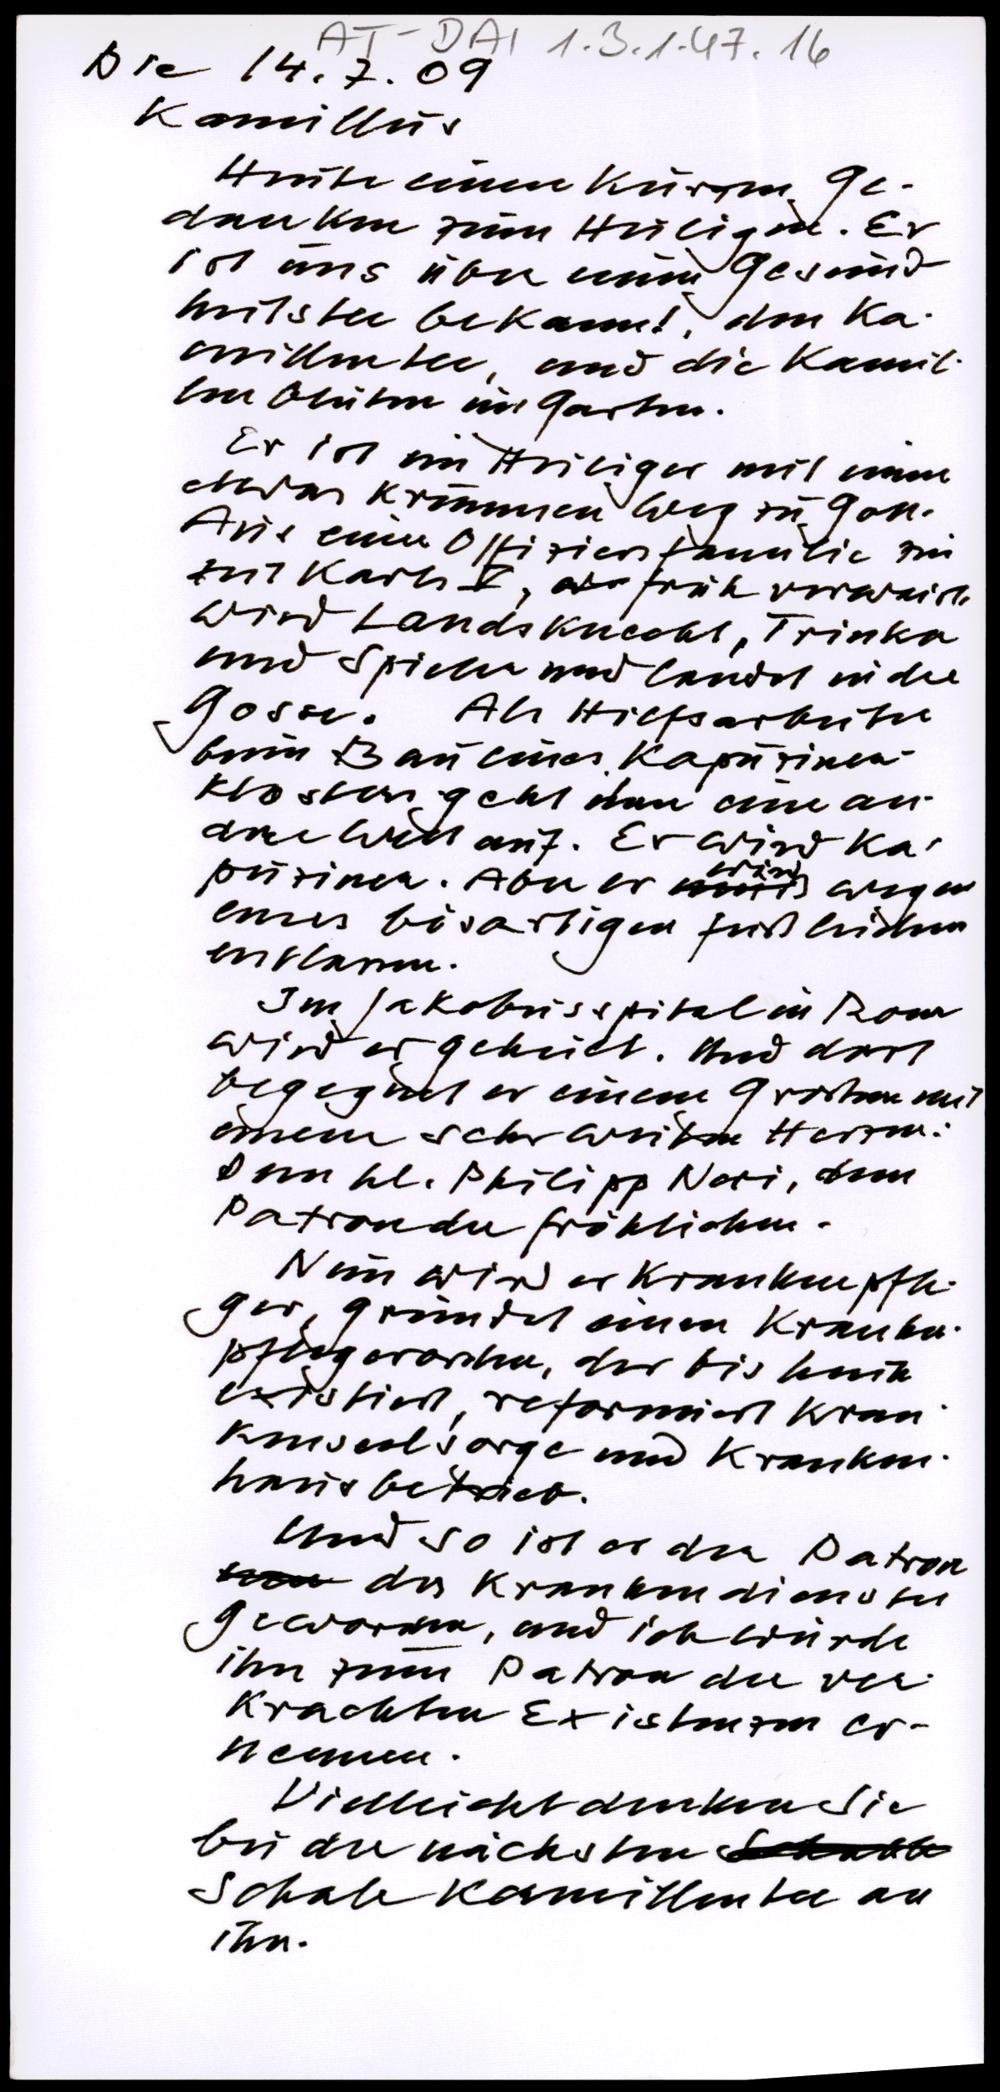 AT-DAI 1.3.1.47.16
Die 14.7.09
Kamillus
Heute einen kurzen Ge-
danken zum Heiligen. Er
ist uns über einen Gesund
heitstee bekannt, den Ka-
millentee, und die Kamil-
len blühen im Garten.
Er ist ein Heiliger mit einem
etwas krummen Weg zu Gott.
Aus einer Offiziersfamilie zur
Zeit Karls V, früh verwaist
wird Landsknecht, Trinker
und Spieler und landet in der
Gosse. Als Hilfsarbeiter
beim Bau eines Kapuziner-
klosters geht ihm eine an-
dere Welt auf. Er wird Ka-
puziner. Aber er wird wegen
eines bösartigen Fußleidens
entlassen.
Im Jakobusspital in Rom
wird er geheilt. Und dort
begegnet er einem Großen mit
einem sehr weiten Herzen:
Dem hl. Philipp Neri, dem
Patron der Fröhlichen.
Nun wird er Krankenpfle-
ger, gründet einen Kranken-
pflegerorden, der bis heute
existiert, reformiert Kran-
kenseelsorge und Kranken-
hausbetrieb.
Und so ist er der Patron
des Krankendienstes
geworden, und ich würde
ihn zum Patron der ver-
krachten Existenzen er-
nennen.
Vielleicht denken Sie
bei der nächsten
Schale Kamillentee an
ihn.